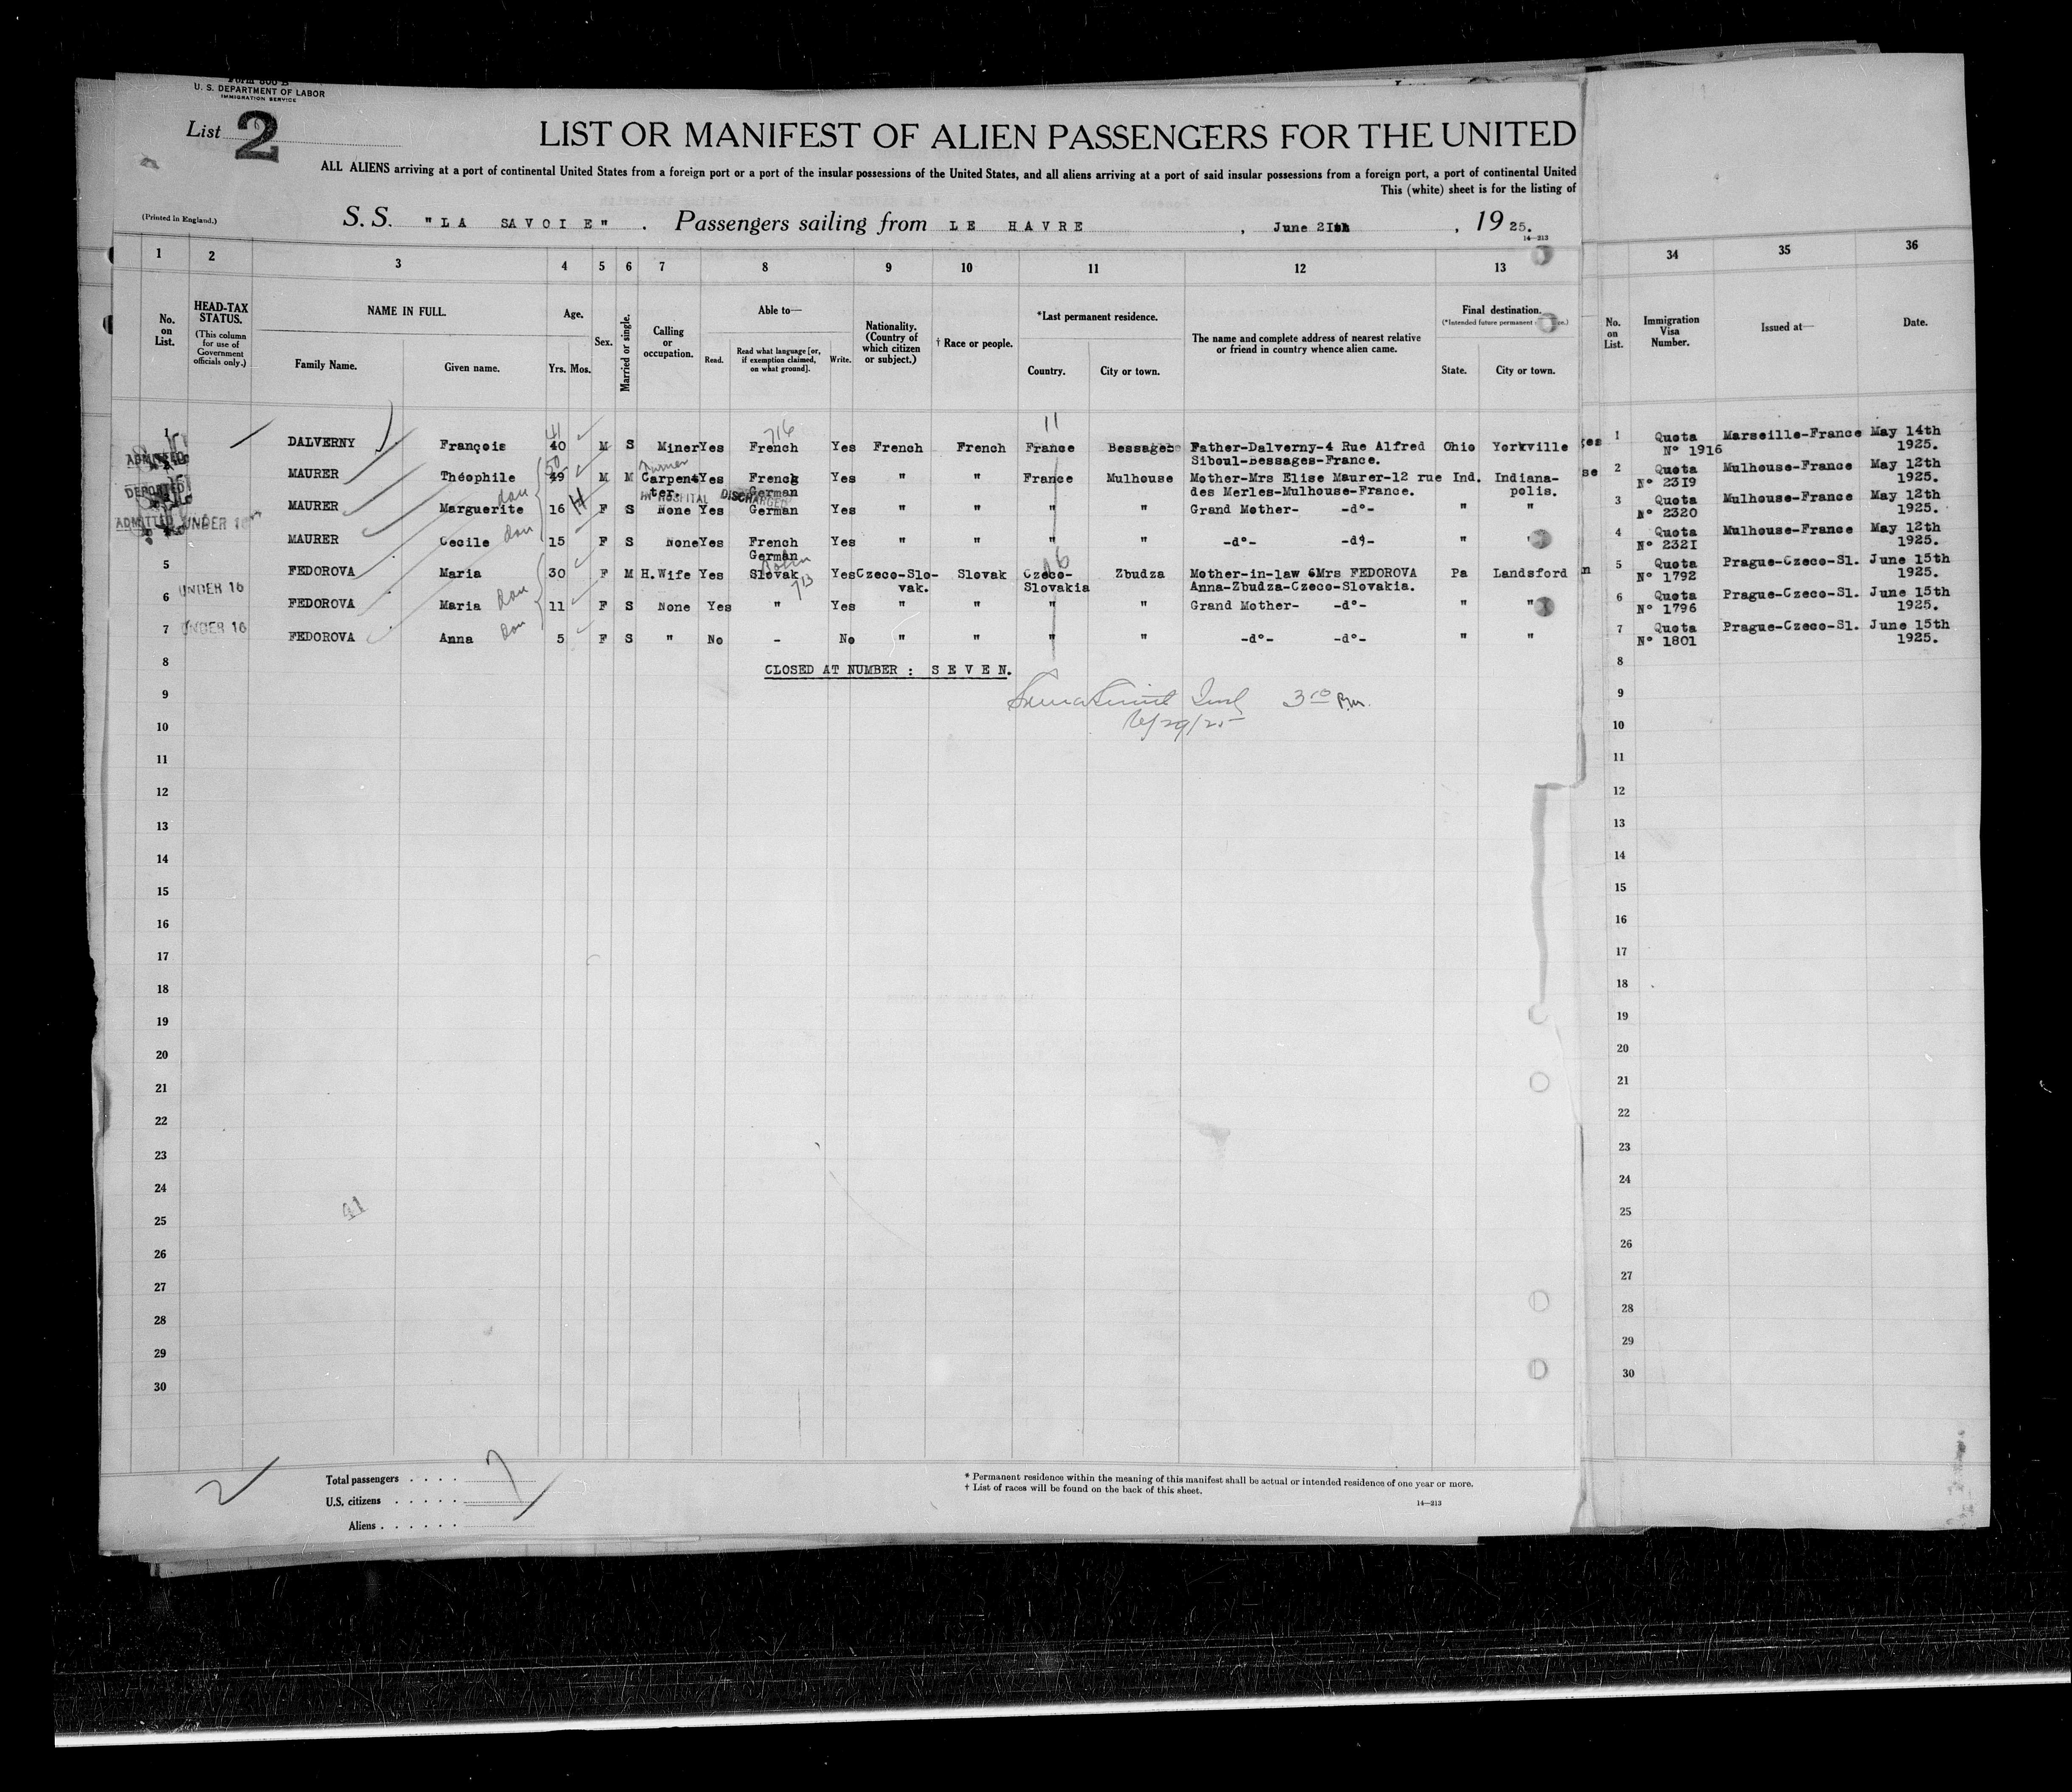 U. S. DEPARTMENT OF LABOR
IMMIGRATION SERVICE
List 2
LIST OR MANIFEST OF ALIEN PASSENGERS FOR THE UNITED
ALL ALIENS arriving at a port of continental United States from a foreign port or a port of the insular possessions of the United States, and all aliens arriving at a port of said insular possessions from a foreign port, a port of continental United
This (white) sheet is for the listing of
(Printed in England.)
S. S. "LA SAVOIE" . Passengers sailing from LE HAVRE , June 21 , 19 25.
14—213
1 2 3 4 5 6 7 8 9 10 11 12 13 34 35 36
No. on List.
HEAD-TAX STATUS.
(This column for use of Government officials only.)
NAME IN FULL.
Family Name. Given name.
Age.
Yrs. Mos.
Sex.
Married or single.
Calling or occupation.
Able to—
Read. Read what language [or, if exemption claimed, on what ground]. Write.
Nationality. (Country of which citizen or subject.)
† Race or people.
*Last permanent residence.
Country. City or town.
The name and complete address of nearest relative or friend in country whence alien came.
Final destination.
(*Intended future permanent
State. City or town.
No. on List.
Immigration Visa Number.
Issued at—
Date.
1 DALVERNY François 40 41 M S Miner Yes French 716 Yes French French France 11 Bessages Father-Dalverny-4 Rue Alfred Ohio Yorkville 1 Quota Marseille-France May 14th
ADMITTED Siboul-Bessages-France. N° 1916 1925.
MAURER Théophile 49 50 M M Carpen- Turner Yes French Yes " " France Mulhouse Mother-Mrs Elise Maurer-12 rue Ind. Indiana- 2 Quota Mulhouse-France May 12th
DEPORTED ter. German des Merles-Mulhouse-France. polis. N° 2319 1925.
IN HOSPITAL DISCHARGED
MAURER Marguerite 16 H F S None Yes German Yes " " " " Grand Mother- -d°- " " 3 Quota Mulhouse-France May 12th
ADMITTED UNDER 16 N° 2320 1925.
MAURER Cecile 15 F S None Yes French Yes " " " " -d°- -d°- " " 4 Quota Mulhouse-France May 12th
German N° 2321 1925.
5 FEDOROVA Maria 30 F M H.Wife Yes Slovak 713 Yes Czeco-Slo- Slovak Czeco- Zbudza Mother-in-law Mrs FEDOROVA Pa Landsford 5 Quota Prague-Czeco-Sl. June 15th
vak. Slovakia Anna-Zbudza-Czeco-Slovakia. N° 1792 1925.
UNDER 16
6 FEDOROVA Maria 11 F S None Yes " Yes " " " " Grand Mother- -d°- " " 6 Quota Prague-Czeco-Sl. June 15th
N° 1796 1925.
7 UNDER 16 FEDOROVA Anna 5 F S " No - No " " " " -d°- -d°- " " 7 Quota Prague-Czeco-Sl. June 15th
N° 1801 1925.
8 CLOSED AT NUMBER : SEVEN. 8
9 3 00 P.M. 9
6/29/25
10 10
11 11
12 12
13 13
14 14
15 15
16 16
17 17
18 18
19 19
20 20
21 21
22 22
23 23
24 24
25 25
26 26
27 27
28 28
29 29
30 30
Total passengers . . . . 7
U.S. citizens . . . . .
Aliens . . . . . .
* Permanent residence within the meaning of this manifest shall be actual or intended residence of one year or more.
† List of races will be found on the back of this sheet.
14—213